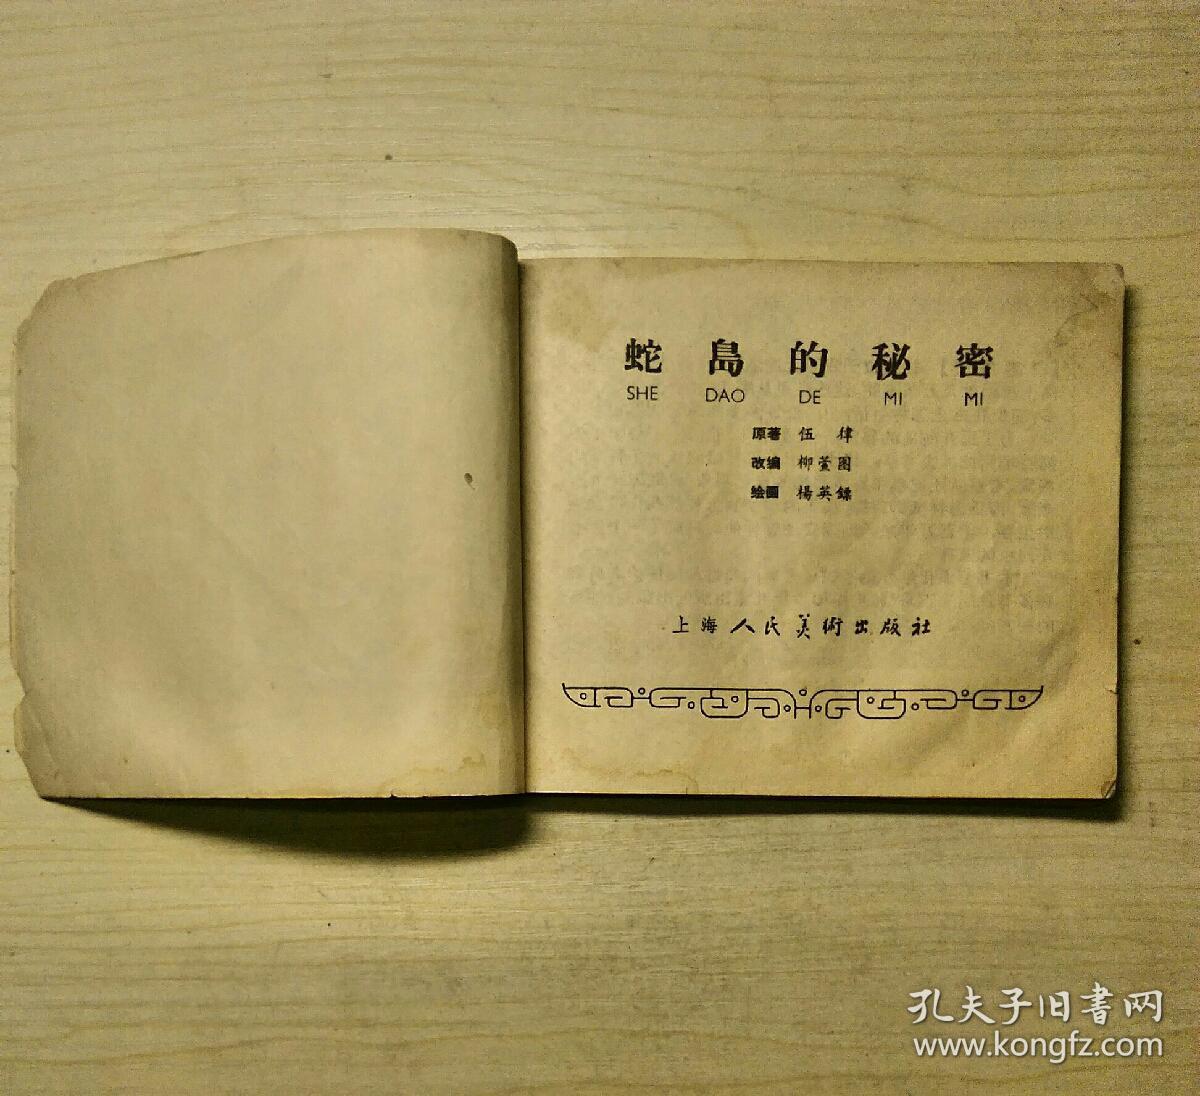 蛇島的秘密
SHE DAO DE MI MI
原著 伍律
改编 柳萱图
绘画 楊英鏢
上海人民美術出版社
孔夫子旧书网
www.kongfz.com